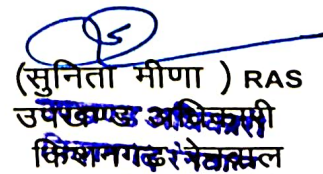 (सुनिता मीणा ) RAS
उपखण्ड अधिकारी
किशनगढ़ रेनवाल